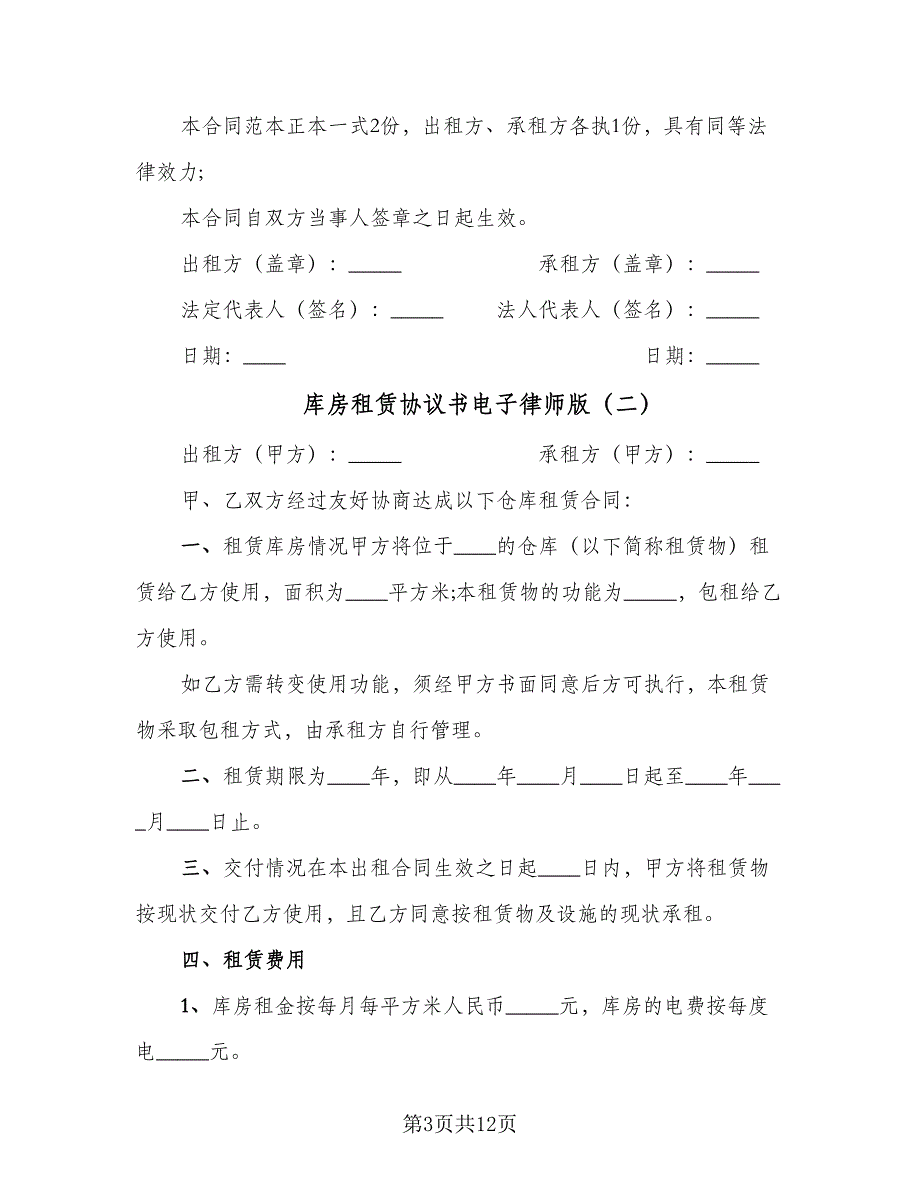 本合同范本正本一式2份，出租方、承租方各执1份，具有同等法
律效力;
本合同自双方当事人签章之日起生效。
出租方（盖章）：_____ 承租方（盖章）：_____
法定代表人（签名）：_____ 法人代表人（签名）：_____
日期：____ 日期：_____
库房租赁协议书电子律师版（二）
出租方（甲方）：_____ 承租方（甲方）：_____
甲、乙双方经过友好协商达成以下仓库租赁合同：
一、租赁库房情况甲方将位于____的仓库（以下简称租赁物）租
赁给乙方使用，面积为____平方米;本租赁物的功能为_____，包租给乙
方使用。
如乙方需转变使用功能，须经甲方书面同意后方可执行，本租赁
物采取包租方式，由承租方自行管理。
二、租赁期限为____年，即从____年____月____日起至____年___
_月____日止。
三、交付情况在本出租合同生效之日起____日内，甲方将租赁物
按现状交付乙方使用，且乙方同意按租赁物及设施的现状承租。
四、租赁费用
1、库房租金按每月每平方米人民币_____元，库房的电费按每度
电_____元。
第3页共12页